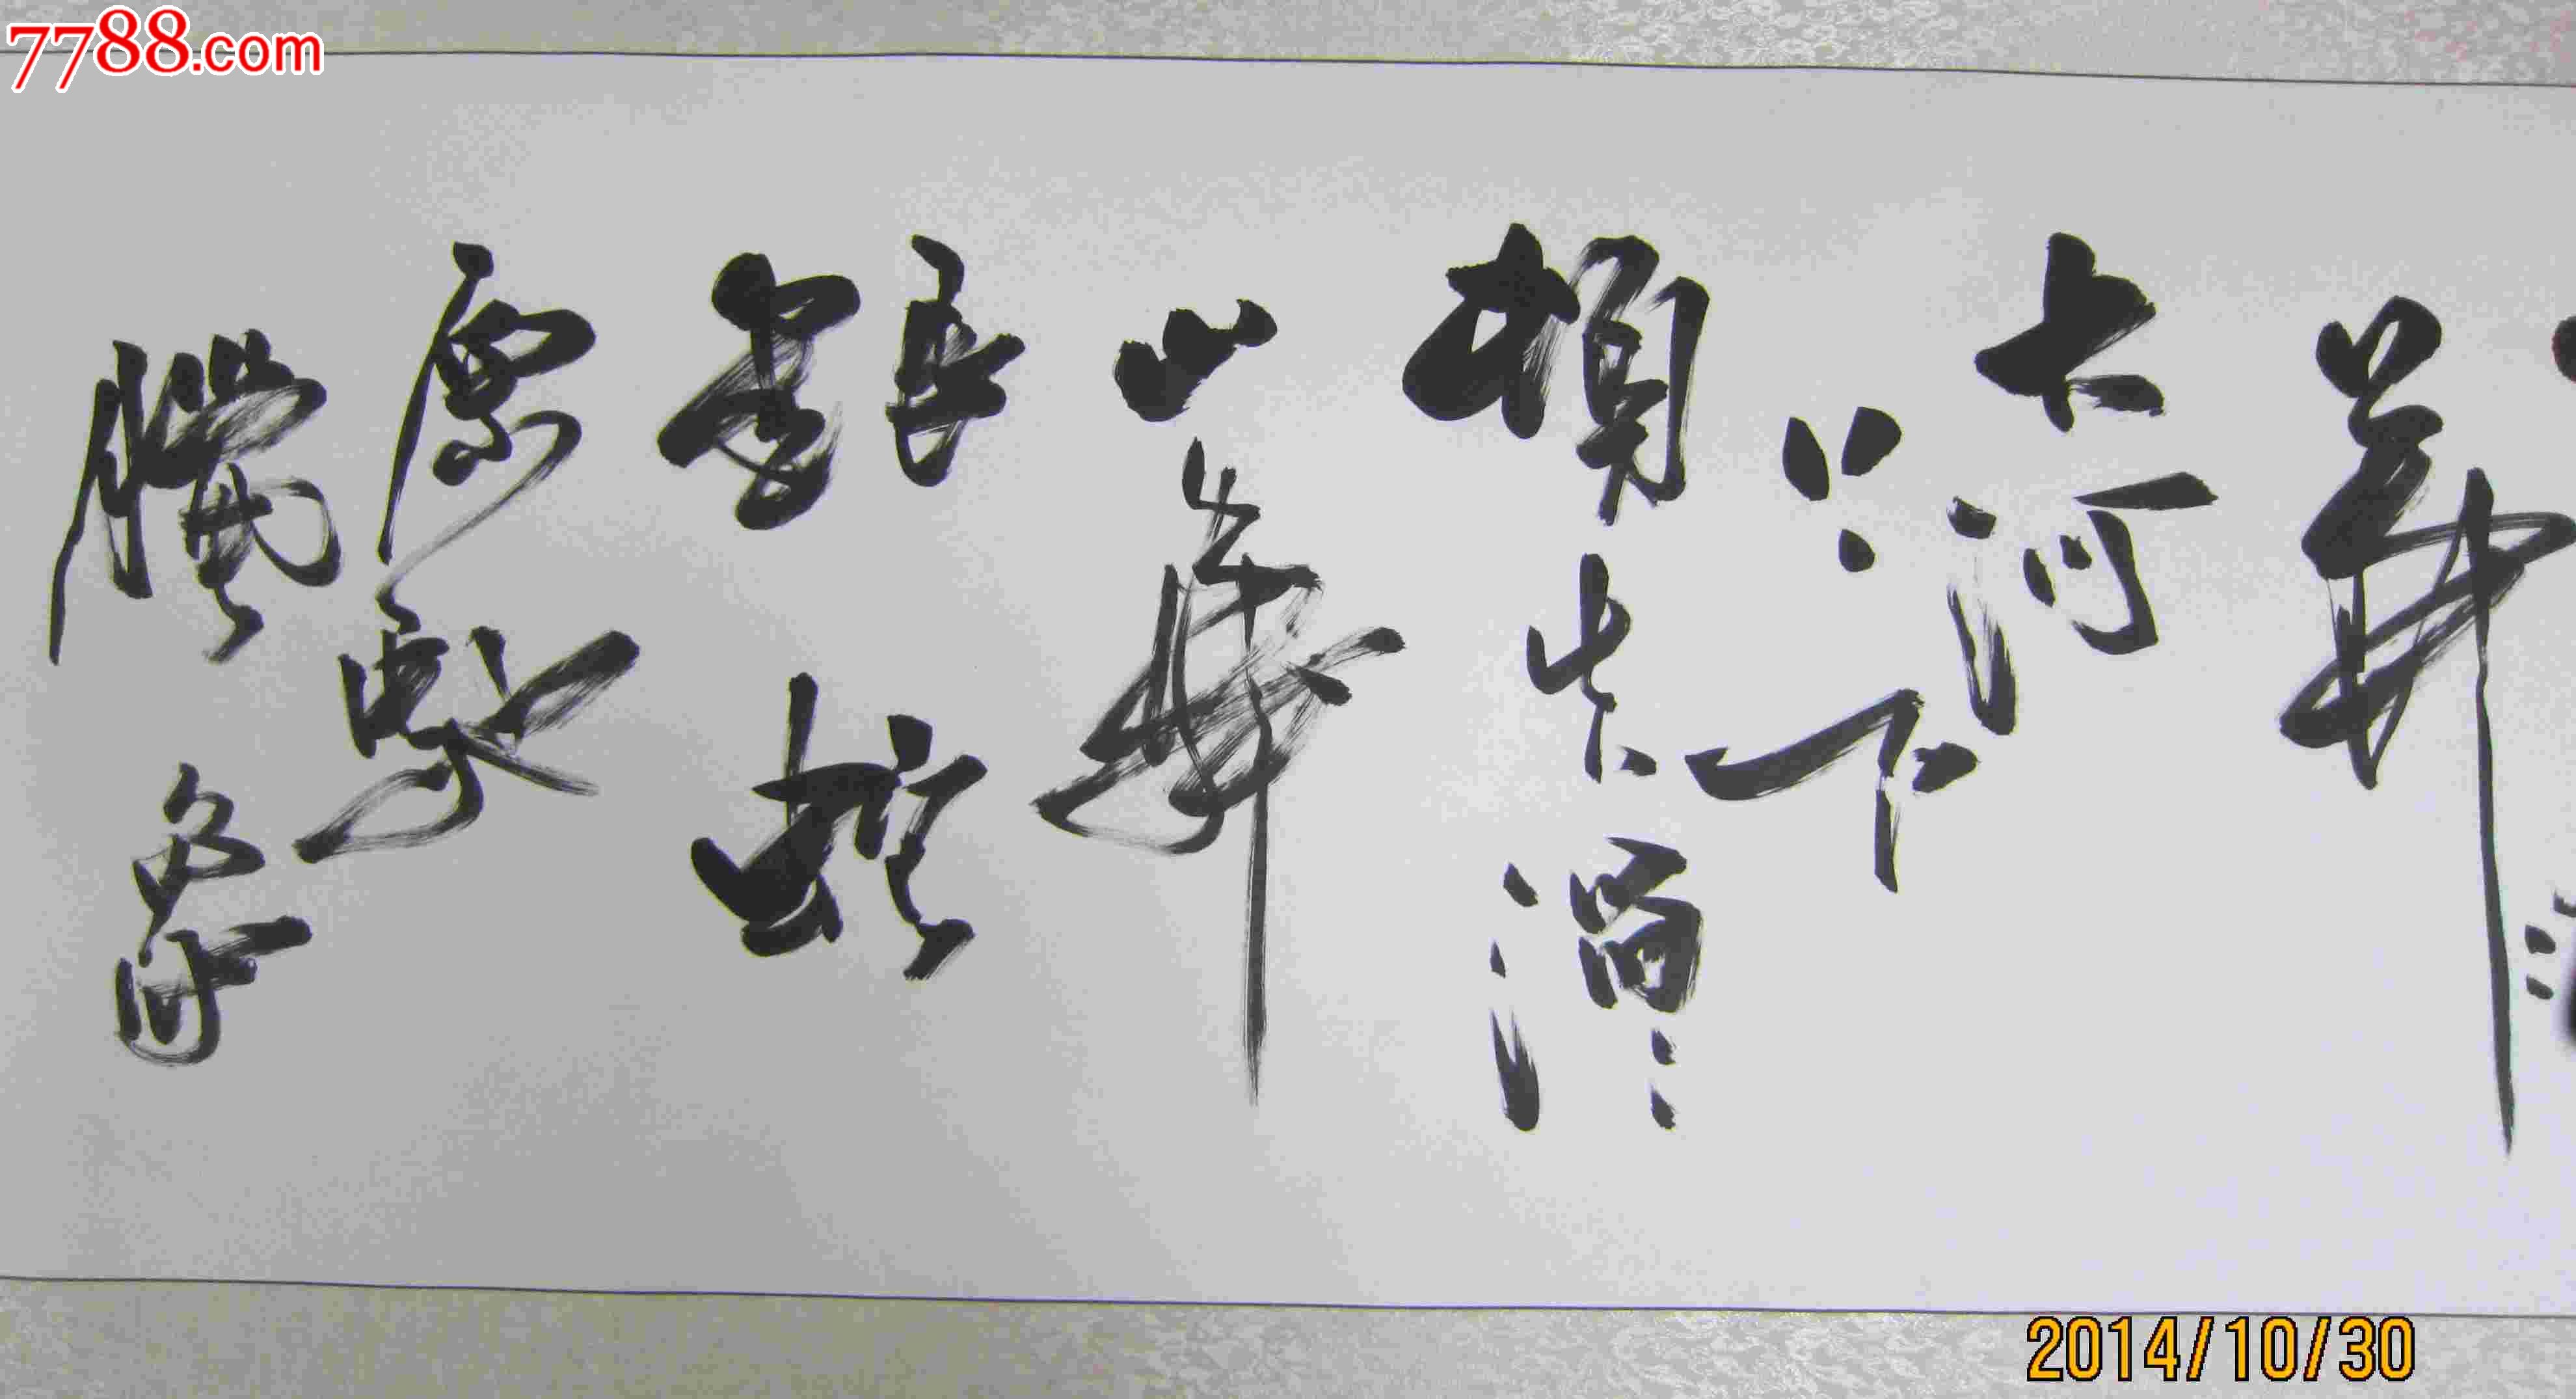 7788.com
莽〻
大河
上下
頓失滔〻
山舞
銀蛇
原馳
臘象
2014/10/30